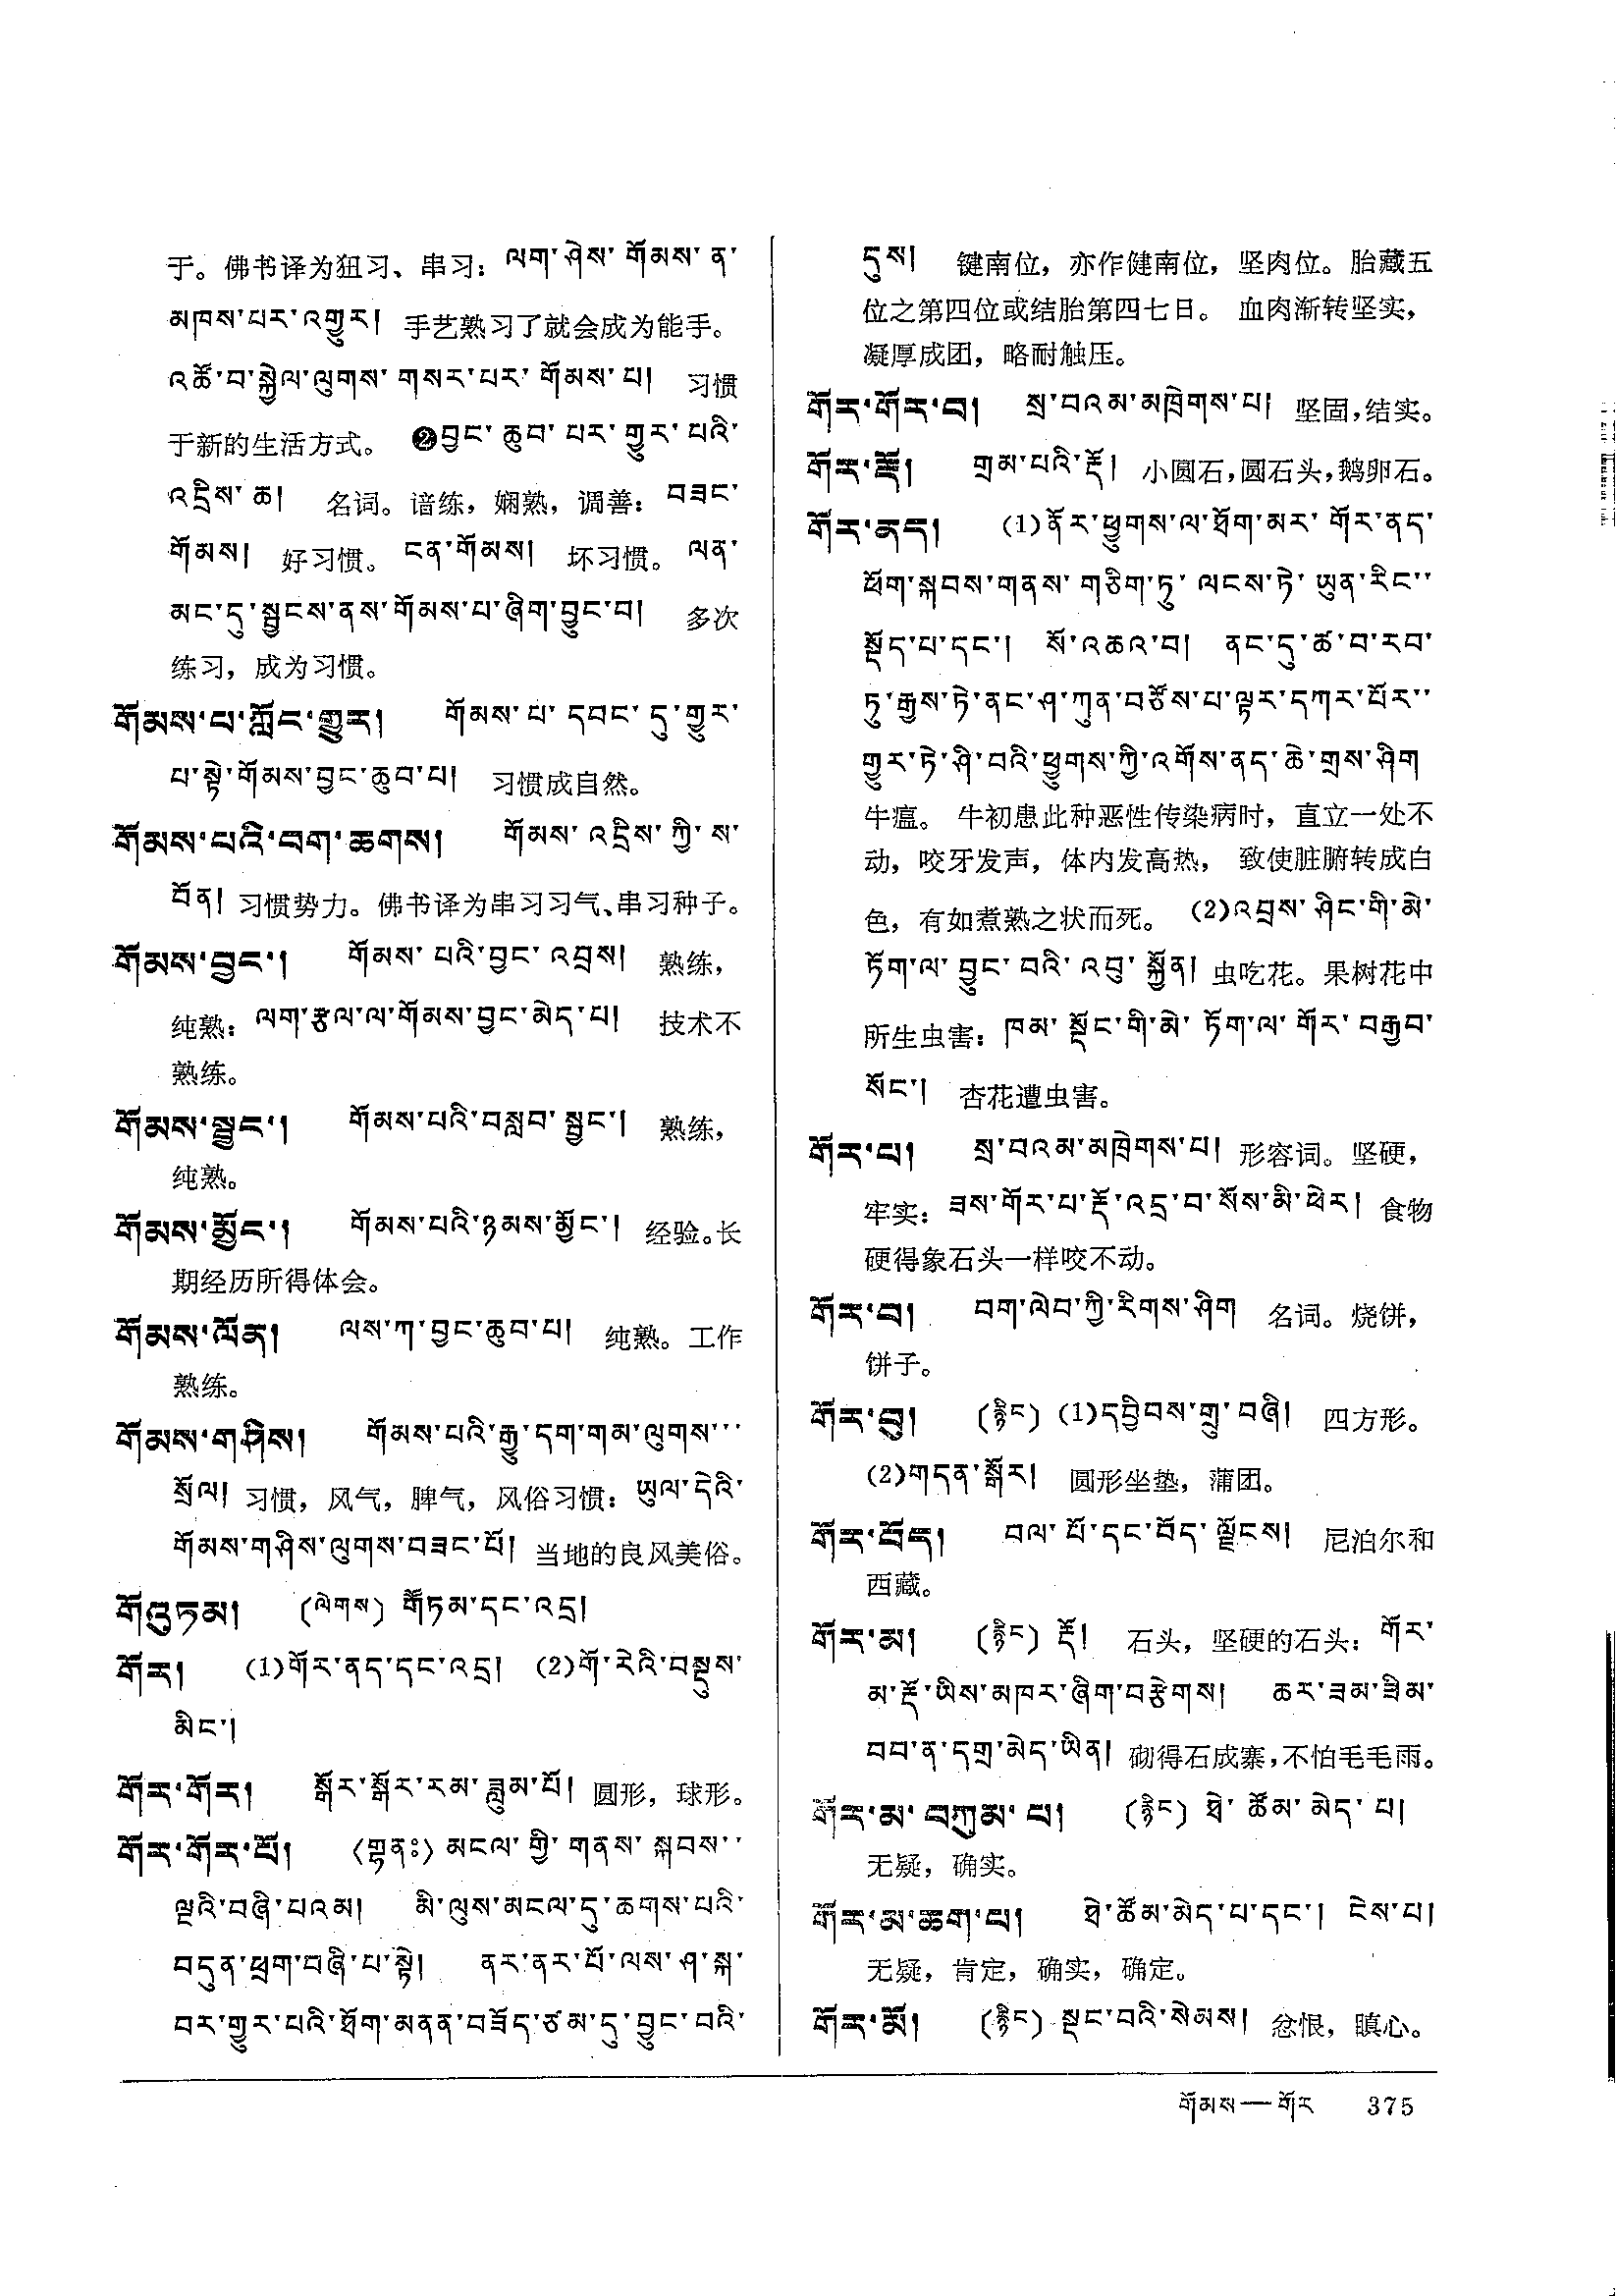 于。佛书译为狃习、串习：ལག་ཤེས་གོམས་ན་
མཁས་པར་འགྱུར། 手艺熟习了就会成为能手。
འཚོ་བ་སྐྱེལ་ལུགས་གསར་པར་གོམས་པ། 习惯
于新的生活方式。 ❷བྱང་ཆུབ་པར་གྱུར་པའི་
འདྲིས་ཆ། 名词。谙练，娴熟，调善：བཟང་
གོམས། 好习惯。ངན་གོམས། 坏习惯。ལན་
མང་དུ་སྦྱངས་ནས་གོམས་པ་ཞིག་བྱུང་བ། 多次
练习，成为习惯。
གོམས་པ་ཀློང་གྱུར། གོམས་པ་དབང་དུ་གྱུར་
པ་སྟེ་གོམས་བྱང་ཆུབ་པ། 习惯成自然。
གོམས་པའི་བག་ཆགས། གོམས་འདྲིས་ཀྱི་ས་
བོན། 习惯势力。佛书译为串习习气、串习种子。
གོམས་བྱང་། གོམས་པའི་བྱང་འབྲས། 熟练，
纯熟：ལག་རྩལ་ལ་གོམས་བྱང་མེད་པ། 技术不
熟练。
གོམས་སྦྱང་། གོམས་པའི་བསླབ་སྦྱང་། 熟练，
纯熟。
གོམས་མྱོང་། གོམས་པའི་ཉམས་མྱོང་། 经验。长
期经历所得体会。
གོམས་ལོན། ལས་ཀ་བྱང་ཆུབ་པ། 纯熟。工作
熟练。
གོམས་གཤིས། གོམས་པའི་རྒྱུ་དག་གམ་ལུགས་་་
སྲོལ། 习惯，风气，脾气，风俗习惯：ཡུལ་དེའི་
གོམས་གཤིས་ལུགས་བཟང་པོ། 当地的良风美俗。
གོའུཏམ། (ལེགས) གོཽཏམ་དང་འདྲ།
གོར། (1)གོར་ནད་དང་འདྲ། (2)གོ་རེའི་བསྡུས་
མིང་།
གོར་གོར། སྒོར་སྒོར་རམ་ཟླུམ་པོ། 圆形，球形。
གོར་གོར་པོ། (གྷནཿ) མངལ་གྱི་གནས་སྐབས་་
ལྔའི་བཞི་པའམ། མི་ལུས་མངལ་དུ་ཆགས་པའི་
བདུན་ཕྲག་བཞི་པ་སྟེ། ནར་ནར་པོ་ལས་ཤ་སྐ་
བར་གྱུར་པའི་ཐོག་མནན་བཟོད་ཙམ་དུ་བྱུང་བའི་
དུས། 键南位，亦作健南位，坚肉位。胎藏五
位之第四位或结胎第四七日。 血肉渐转坚实，
凝厚成团，略耐触压。
གོར་གོར་བ། སྲ་བའམ་མཁྲེགས་པ། 坚固，结实。
གོར་རྡོ། གྲམ་པའི་རྡོ། 小圆石，圆石头，鹅卵石。
གོར་ནད། (1)ནོར་ཕྱུགས་ལ་ཐོག་མར་གོར་ནད་
ཕོག་སྐབས་གནས་གཅིག་ཏུ་ལངས་ཏེ་ཡུན་རིང་་
སྡོད་པ་དང་། སོ་འཆའ་བ། ནང་དུ་ཚ་བ་རབ་
ཏུ་རྒྱས་ཏེ་ནང་ཤ་ཀུན་བཙོས་པ་ལྟར་དཀར་པོར་་
གྱུར་ཏེ་ཤི་བའི་ཕྱུགས་ཀྱི་འགོས་ནད་ཆེ་གྲས་ཤིག
牛瘟。 牛初患此种恶性传染病时，直立一处不
动，咬牙发声，体内发高热， 致使脏腑转成白
色，有如煮熟之状而死。 (2)འབྲས་ཤིང་གི་མེ་
ཏོག་ལ་བྱུང་བའི་འབུ་སྐྱོན། 虫吃花。果树花中
所生虫害：ཁམ་སྡོང་གི་མེ་ཏོག་ལ་གོར་བརྒྱབ་
སོང་། 杏花遭虫害。
གོར་པ། སྲ་བའམ་མཁྲེགས་པ། 形容词。坚硬，
牢实：ཟས་གོར་པ་རྡོ་འདྲ་བ་སོས་མི་ཕེར། 食物
硬得象石头一样咬不动。
གོར་བ། བག་ལེབ་ཀྱི་རིགས་ཤིག 名词。烧饼，
饼子。
གོར་བུ། (རྙིང) (1)དབྱིབས་གྲུ་བཞི། 四方形。
(2)གདན་སྒོར། 圆形坐垫，蒲团。
གོར་བོད། བལ་པོ་དང་བོད་ལྗོངས། 尼泊尔和
西藏。
གོར་མ། (རྙིང) རྡོ། 石头，坚硬的石头：གོར་
མ་རྡོ་ཡིས་མཁར་ཞིག་བརྩེགས། ཆར་ཟམ་ཟིམ་
བབ་ན་དགྲ་མེད་ཡིན། 砌得石成寨，不怕毛毛雨。
གོར་མ་བཀུམ་པ། (རྙིང) ཐེ་ཚོམ་མེད་པ།
无疑，确实。
གོར་མ་ཆག་པ། ཐེ་ཚོམ་མེད་པ་དང་། ངེས་པ།
无疑，肯定，确实，确定。
གོར་མོ། (རྙིང) སྡང་བའི་སེམས། 忿恨，瞋心。
གོམས—གོར 375